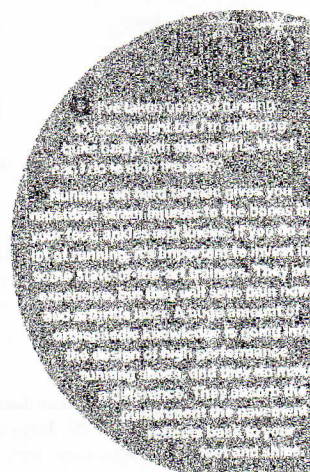 I've taken up road running
to lose weight but I'm suffering
quite badly with shin splints. What
can I do to stop the pain?
Running on hard terrain gives you
repetitive strain injuries to the bones in
your feet, ankles and knees. If you do a
lot of running, it's important to invest in
some state of the art trainers. They are
expensive, but this will save pain now
and arthritis later. A huge amount of
technology is going into
the design of high performance
running shoes and they do make
a difference. They absorb the
the pavement
back to your
feet and shins.